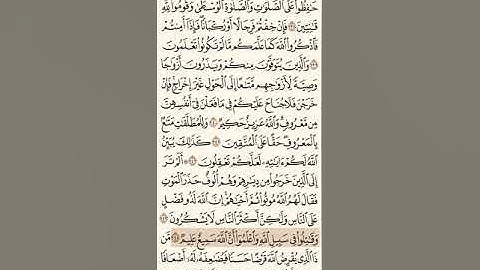 حَٰفِظُوا۟ عَلَى ٱلصَّلَوَٰتِ وَٱلصَّلَوٰةِ ٱلْوُسْطَىٰ وَقُومُوا۟ لِلَّهِ
قَٰنِتِينَ ٢٣٨ فَإِنْ خِفْتُمْ فَرِجَالًا أَوْ رُكْبَانًا فَإِذَآ أَمِنتُمْ
فَٱذْكُرُوا۟ ٱللَّهَ كَمَا عَلَّمَكُم مَّا لَمْ تَكُونُوا۟ تَعْلَمُونَ
٢٣٩ وَٱلَّذِينَ يُتَوَفَّوْنَ مِنكُمْ وَيَذَرُونَ أَزْوَٰجًا
وَصِيَّةً لِّأَزْوَٰجِهِم مَّتَٰعًا إِلَى ٱلْحَوْلِ غَيْرَ إِخْرَاجٍ فَإِنْ
خَرَجْنَ فَلَا جُنَاحَ عَلَيْكُمْ فِى مَا فَعَلْنَ فِىٓ أَنفُسِهِنَّ
مِن مَّعْرُوفٍ وَٱللَّهُ عَزِيزٌ حَكِيمٌ ٢٤٠ وَلِلْمُطَلَّقَٰتِ مَتَٰعٌۢ
بِٱلْمَعْرُوفِ حَقًّا عَلَى ٱلْمُتَّقِينَ ٢٤١ كَذَٰلِكَ يُبَيِّنُ
ٱللَّهُ لَكُمْ ءَايَٰتِهِۦ لَعَلَّكُمْ تَعْقِلُونَ ٢٤٢ ۞ أَلَمْ تَرَ
إِلَى ٱلَّذِينَ خَرَجُوا۟ مِن دِيَٰرِهِمْ وَهُمْ أُلُوفٌ حَذَرَ ٱلْمَوْتِ
فَقَالَ لَهُمُ ٱللَّهُ مُوتُوا۟ ثُمَّ أَحْيَٰهُمْ إِنَّ ٱللَّهَ لَذُو فَضْلٍ
عَلَى ٱلنَّاسِ وَلَٰكِنَّ أَكْثَرَ ٱلنَّاسِ لَا يَشْكُرُونَ ٢٤٣
وَقَٰتِلُوا۟ فِى سَبِيلِ ٱللَّهِ وَٱعْلَمُوٓا۟ أَنَّ ٱللَّهَ سَمِيعٌ عَلِيمٌ ٢٤٤ مَّن
ذَا ٱلَّذِى يُقْرِضُ ٱللَّهَ قَرْضًا حَسَنًا فَيُضَٰعِفَهُۥ لَهُۥٓ أَضْعَافًا